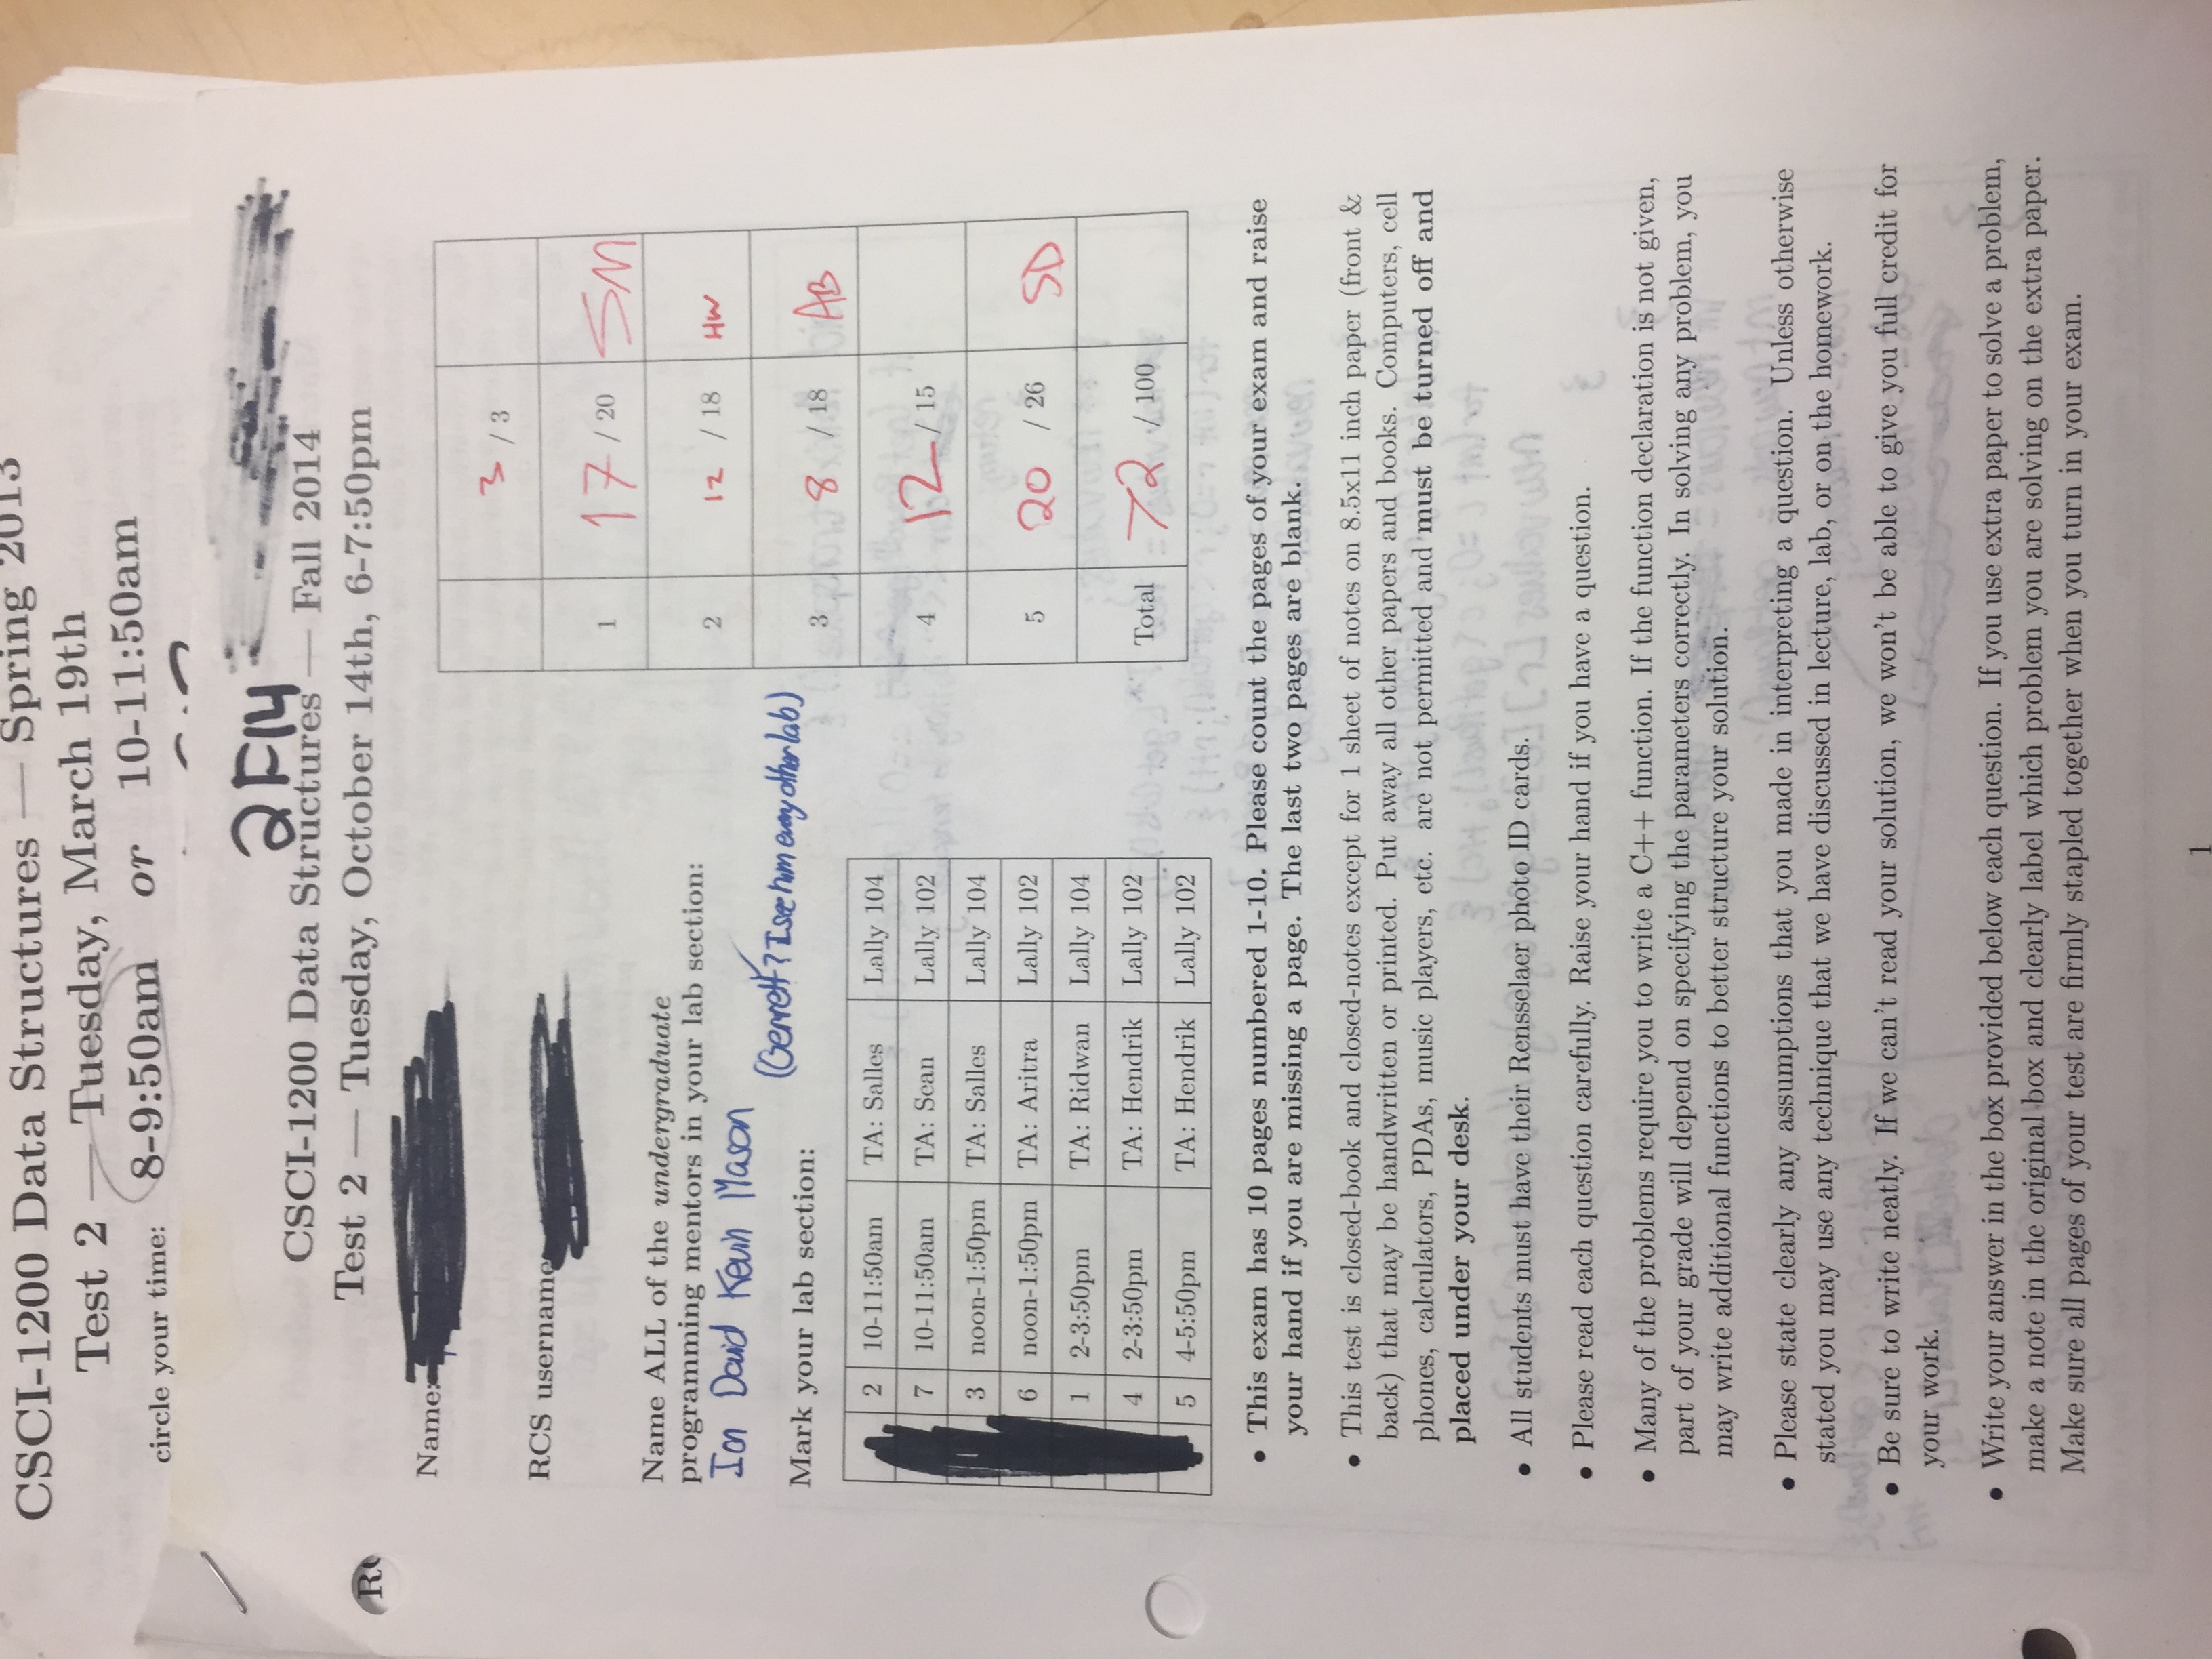 CSCI-1200 Data Structures — Spring 2013
Test 2 — Tuesday, March 19th
circle your time: 8-9:50am or 10-11:50am
2F14
CSCI-1200 Data Structures — Fall 2014
Test 2 — Tuesday, October 14th, 6-7:50pm
Name:
RCS username
Name ALL of the undergraduate
programming mentors in your lab section:
Ian David Kevin Mason
(Gerrett? I see him every other lab)
Mark your lab section:
2 10-11:50am TA: Salles Lally 104
7 10-11:50am TA: Sean Lally 102
3 noon-1:50pm TA: Salles Lally 104
6 noon-1:50pm TA: Aritra Lally 102
1 2-3:50pm TA: Ridwan Lally 104
4 2-3:50pm TA: Hendrik Lally 102
5 4-5:50pm TA: Hendrik Lally 102
3 / 3
1 17 / 20 SM
2 12 / 18 HW
3 8 / 18 AB
4 12 / 15
5 20 / 26 SD
Total 72 / 100
• This exam has 10 pages numbered 1-10. Please count the pages of your exam and raise
your hand if you are missing a page. The last two pages are blank.
• This test is closed-book and closed-notes except for 1 sheet of notes on 8.5x11 inch paper (front &
back) that may be handwritten or printed. Put away all other papers and books. Computers, cell
phones, calculators, PDAs, music players, etc. are not permitted and must be turned off and
placed under your desk.
• All students must have their Rensselaer photo ID cards.
• Please read each question carefully. Raise your hand if you have a question.
• Many of the problems require you to write a C++ function. If the function declaration is not given,
part of your grade will depend on specifying the parameters correctly. In solving any problem, you
may write additional functions to better structure your solution.
• Please state clearly any assumptions that you made in interpreting a question. Unless otherwise
stated you may use any technique that we have discussed in lecture, lab, or on the homework.
• Be sure to write neatly. If we can't read your solution, we won't be able to give you full credit for
your work.
• Write your answer in the box provided below each question. If you use extra paper to solve a problem,
make a note in the original box and clearly label which problem you are solving on the extra paper.
Make sure all pages of your test are firmly stapled together when you turn in your exam.
1